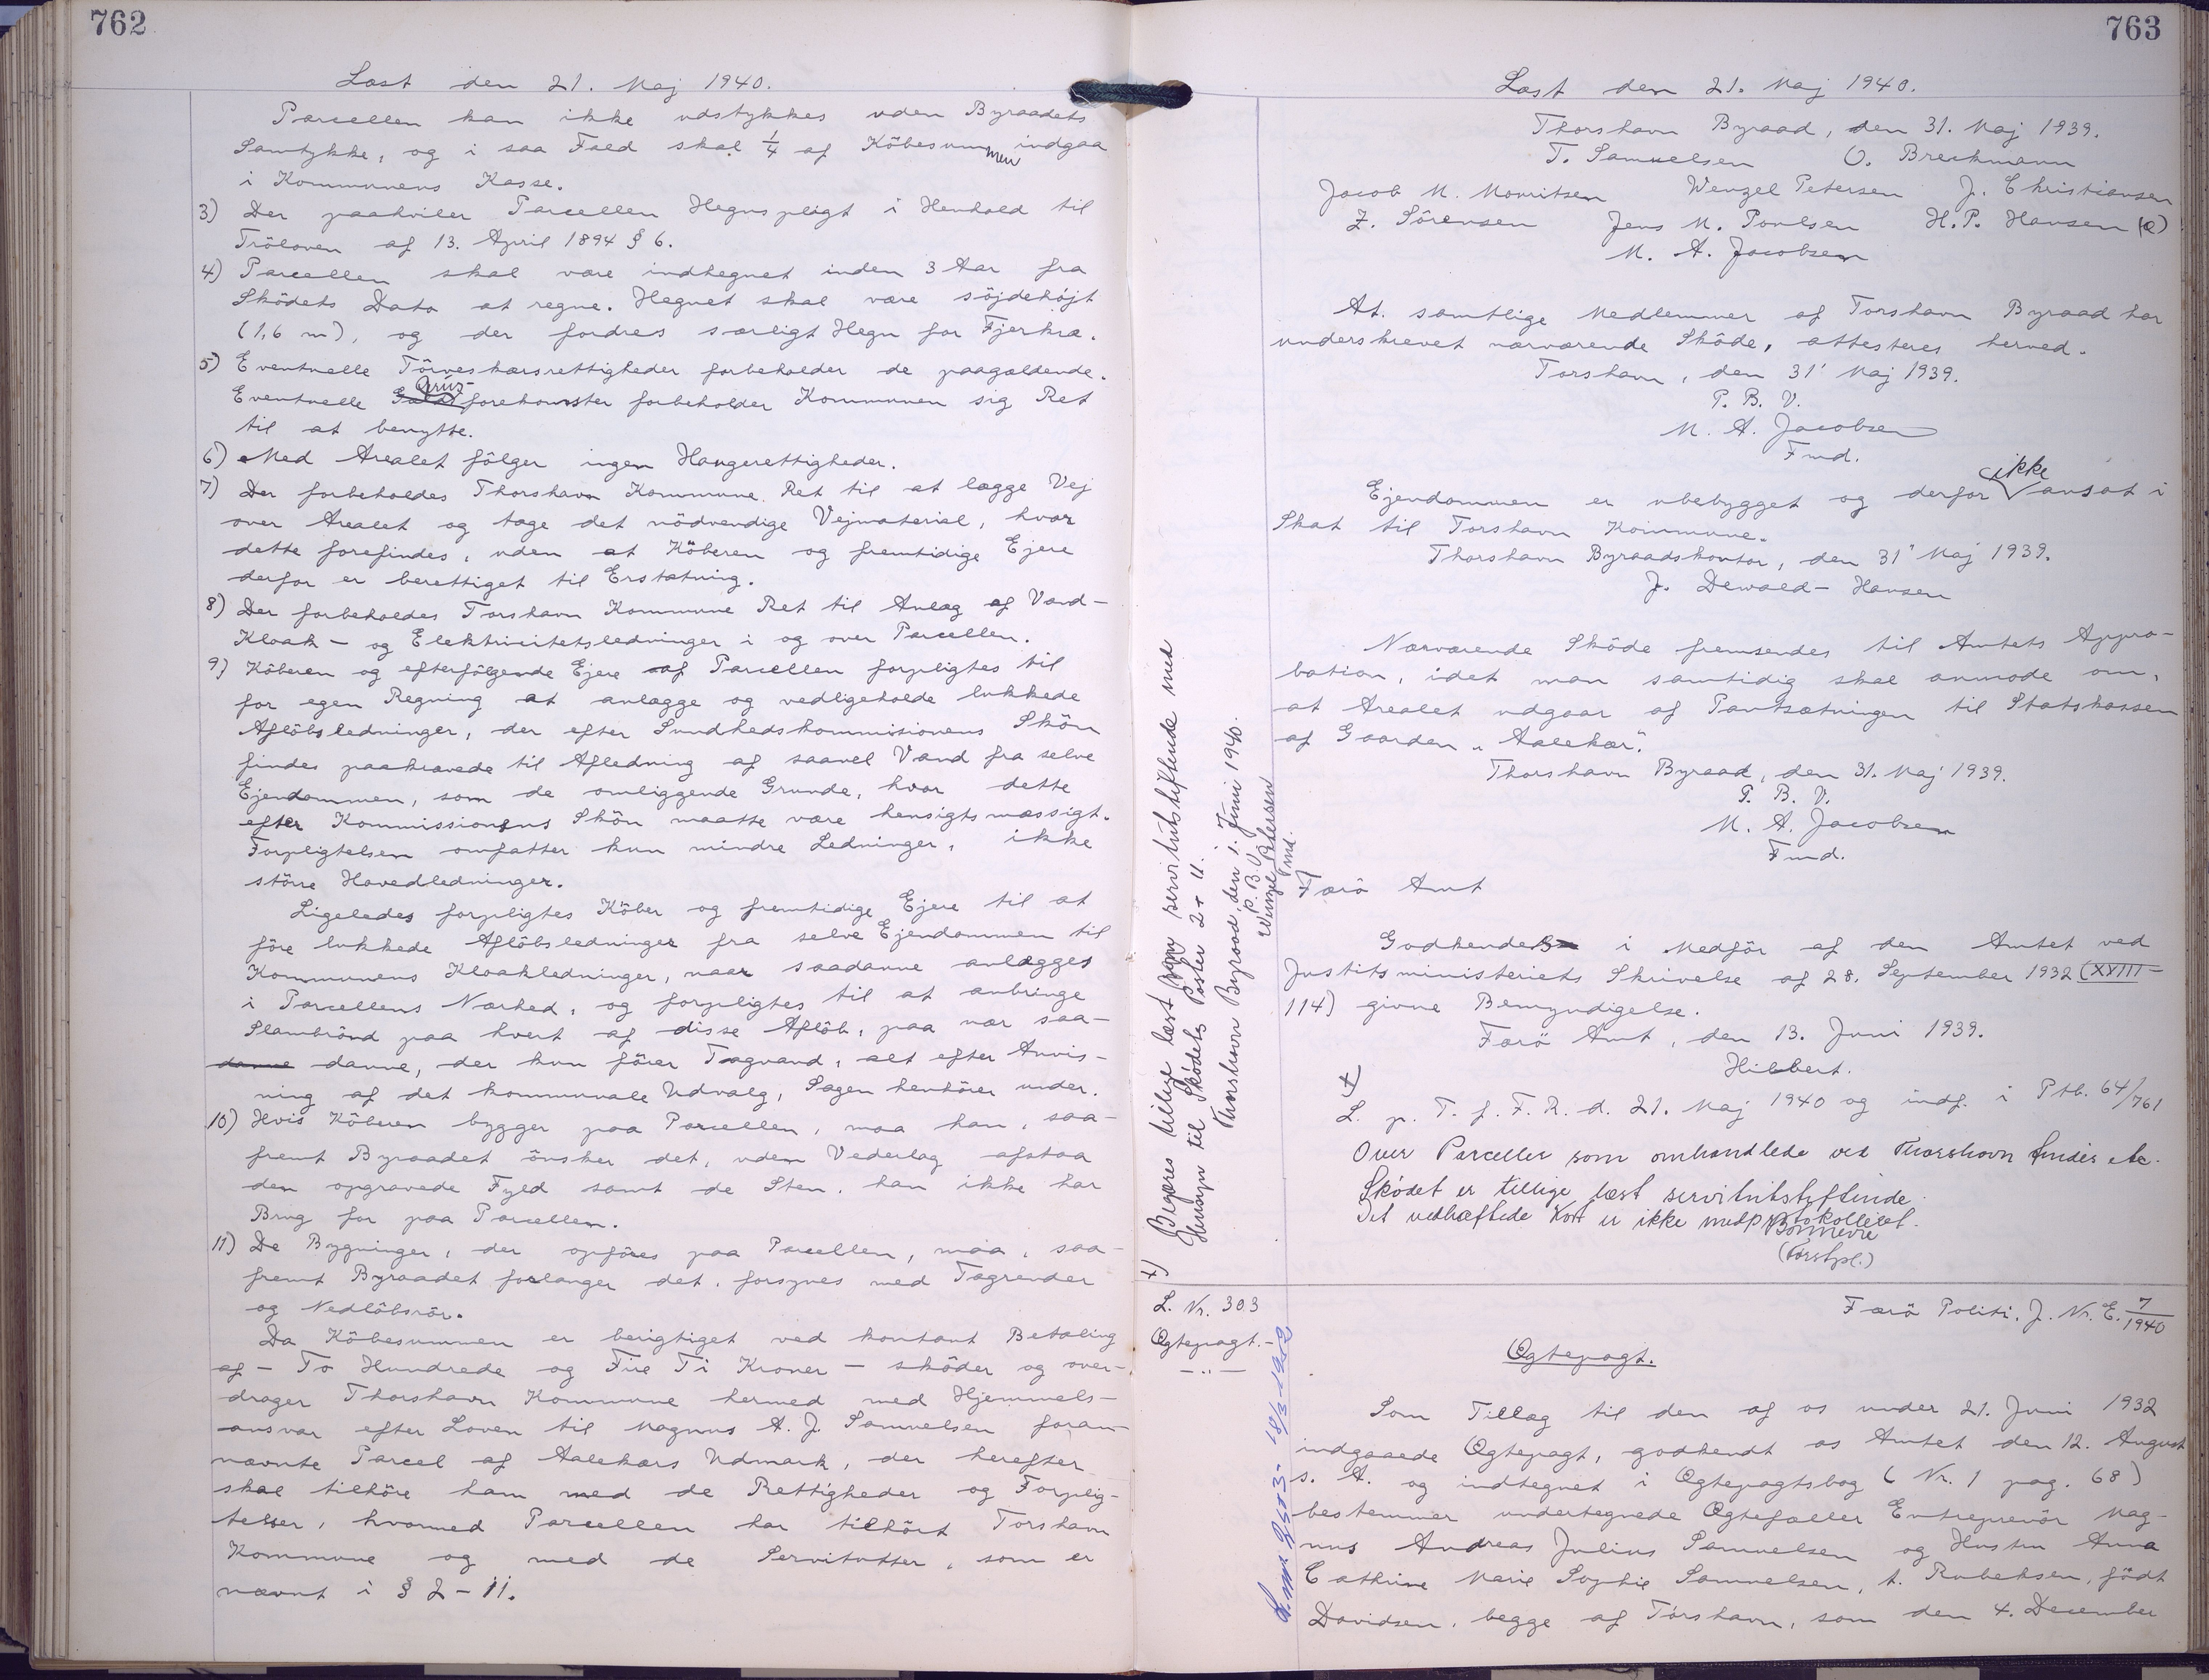 762
Læst den 21. Maj 1940.
Parcellen kan ikke udstykkes uden Byraadets
Samtykke, og i saa Fald skal 1/4 af Köbesummen indgaa
i Kommunens Kasse.
3) Der paahviler Parcellen Hegnspligt i Henhold til
Tröloven af 13. April 1894 § 6.
4) Parcellen skal være indhegnet inden 3 Aar fra
Sködets Dato at regne. Hegnet skal være söjdehöjt
(1,6 m), og der fordres særligt Hegn for Fjerkræ.
5) Eventuelle Törveskærsrettigheder forbeholder de paagældende.
Eventuelle Grus-forekomster forbeholder Kommunen sig Ret
til at benytte.
6) Med Arealet fölger ingen Haugerettigheder.
7) Der forbeholdes Thorshavn Kommune Ret til at lægge Vej
over Arealet og tage det nödvendige Vejmaterial, hvor
dette forefindes, uden at Köberen og fremtidige Ejere
derfor er berettiget til Erstatning.
8) Der forbeholdes Torshavn Kommune Ret til Anlæg af Vand-
Kloak- og Elektricitetsledninger i og over Parcellen.
9) Köberen og efterfölgende Ejere af Parcellen forpligtes til
for egen Regning at anlægge og vedligeholde lukkede
Aflöbsledninger, der efter Sundhedskommissionens Skön
findes paakrævede til Afledning af saavel Vand fra selve
Ejendommen, som de omliggende Grunde, hvor dette
efter Kommissionens Skön maatte være hensigtsmæssigt.
Forpligtelsen omfatter kun mindre Ledninger, ikke
större Hovedledninger.
Ligeledes forpligtes Köber og fremtidige Ejere til at
före lukkede Aflöbsledninger fra selve Ejendommen til
Kommunens Kloakledninger, naar saadanne anlægges
i Parcellens Nærhed, og forpligtes til at anbringe
Slambrönd paa hvert af disse Aflöb, paa nær saa-
danne danne, der kun förer Tagvand, alt efter Anvis-
ning af det kommunale Udvalg, Sagen henhörer under.
10) Hvis Köberen bygger paa Parcellen, maa han, saa-
fremt Byraadet önsker det, uden Vederlag afstaa
den opgravede Fyld samt de Sten, han ikke har
Brug for paa Parcellen.
11) De Bygninger, der opföres paa Parcellen, maa, saa-
fremt Byraadet forlanger det, forsynes med Tagrender
og Nedlöbsrör.
Da Köbesummen er berigtiget ved kontant Betaling
af - To Hundrede og Fire Ti Kroner - sköder og over-
drager Thorshavn Kommune hermed med Hjemmels-
ansvar efter Loven til Magnus A. J. Samuelsen foran-
nævnte Parcel af Aalekærs Udmark, der herefter
skal tilhöre ham med de Rettigheder og Forplig-
telser, hvormed Parcellen har tilhört Torshavn
Kommune og med de Servitutter, som er
nævnt i § 2-11.
763
Læst den 21. Maj 1940.
Thorshavn Byraad, den 31. Maj 1939.
T. Samuelsen O. Breckmann
Jacob M. Mouritsen Wenzel Petersen J. Christiansen
Z. Sörensen Jens M. Poulsen H.P. Hansen (e)
M. A. Jacobsen
At samtlige Medlemmer af Torshavn Byraad har
underskrevet nærværende Sköde, attesteres herved.
Torshavn, den 31' Maj 1939.
P. B. V.
M. A. Jacobsen
Fmd.
Ejendommen er ubebygget og derfor ikke ansat i
Skat til Torshavn Kommune.
Thorshavn Byraadskontor, den 31' Maj 1939.
J. Dewald-Hansen
Nærværende Sköde fremsendes til Amtets Appro-
bation, idet man samtidig skal anmode om,
at Arealet udgaar af Pantsætningen til Statskassen
af Gaarden "Aalekær".
Thorshavn Byraad, den 31. Maj 1939.
P. B. V.
M. A. Jacobsen
Fmd.
Færö Amt
Godkendes i Medför af den Amtet ved
Justitsministeriets Skrivelse af 28. September 1932 (XVIII-
114) givne Bemyndigelse.
Færö Amt, den 13. Juni 1939.
Hilbert.
+)
L. p. T. f. F. R. d. 21. Maj 1940 og indf. i Ptb. 64/761
Over Parceller som omhandlede ved Thorshavn findes
Sködet er tillige læst servitutstiftende.
Det vedhæftede Kort er ikke medprotokolleret.
(Forstpl.)
+) Begæres tillige læst servitutstiftende med
Hensyn til Sködets Poster 2-11.
Thorshavn Byraad, den 1. Juni 1940.
P. B. V.
Wenzel Petersen
Fmd.
L. Nr. 303
Ægtepagt.-
-"-
Færö Politi. J. Nr. E. 7/1940
Ægtepagt.
Som Tillæg til den af os under 21. Juni 1932
indgaaede Ægtepagt, godkendt as Amtet den 12. August
s. A. og indtegnet i Ægtepagtsbog (Nr. 1 pag. 68)
bestemmer undertegnede Ægtefæller Entreprenör Mag-
nus Andreas Julius Samuelsen og Hustru Anna
Cathrine Marie Sophie Samuelsen, f. Rubeksen, födt
Davidsen, begge af Tórshavn, som den 4. December